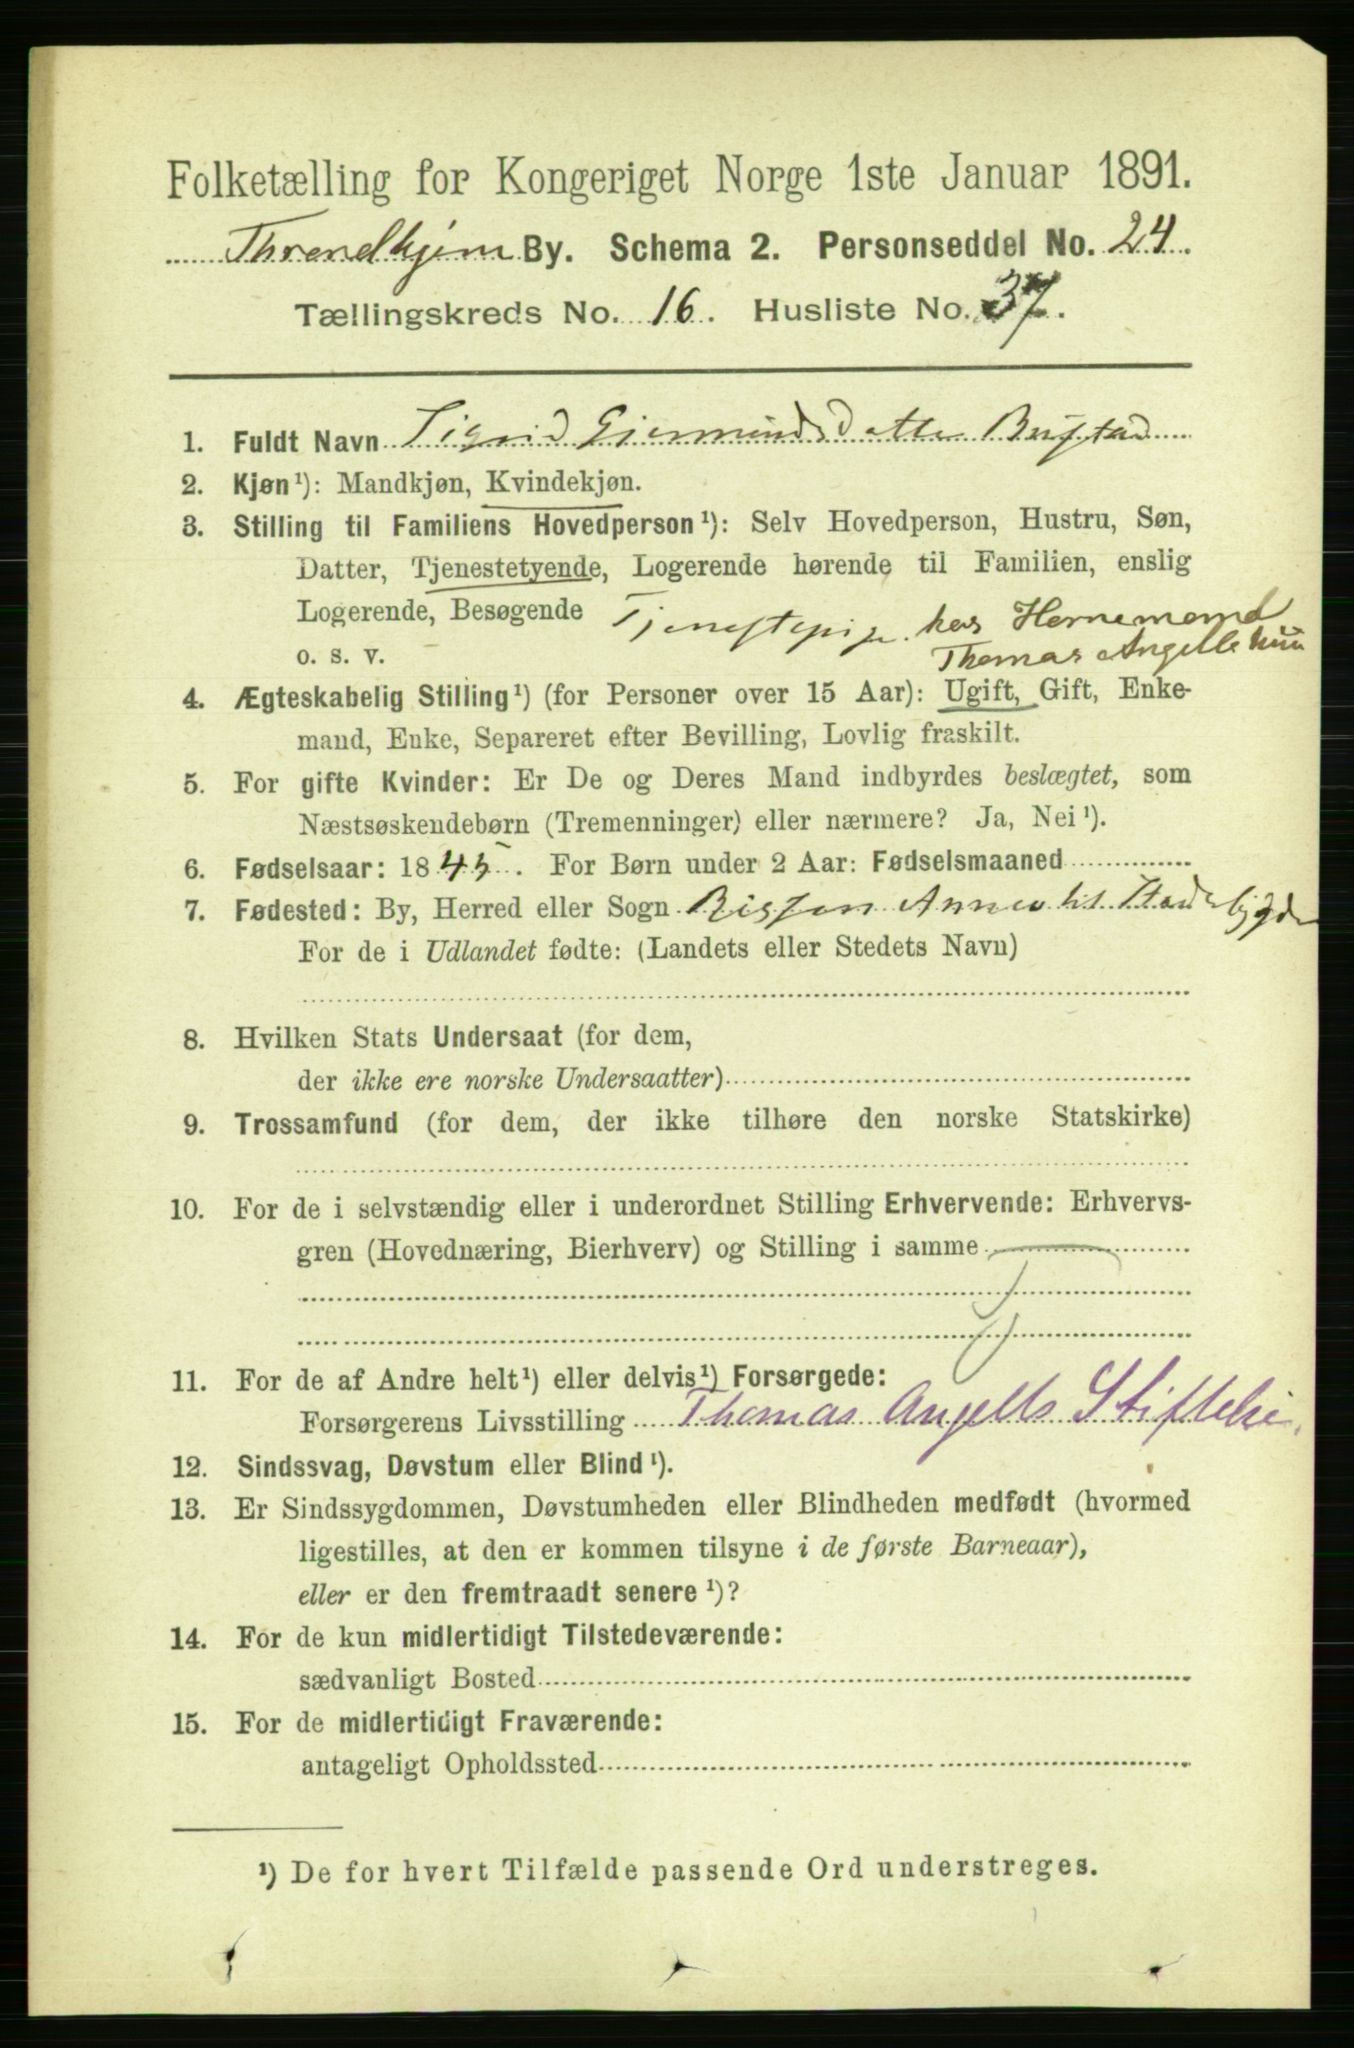 Folketælling for Kongeriget Norge 1ste Januar 1891.
Throndhjem By. Schema 2. Personseddel No. 24.
Tællingskreds No. 16. Husliste No. 37.
1. Fuldt Navn Sigrid Giermundsdatter Bustad
2. Kjøn¹): Mandkjøn, Kvindekjøn.
3. Stilling til Familiens Hovedperson¹): Selv Hovedperson, Hustru, Søn,
Datter, Tjenestetyende, Logerende hørende til Familien, enslig
Logerende, Besøgende Tjenestepige hos Hornemand
o. s. v. Thomas Angells
4. Ægteskabelig Stilling¹) (for Personer over 15 Aar): Ugift, Gift, Enke-
mand, Enke, Separeret efter Bevilling, Lovlig fraskilt.
5. For gifte Kvinder: Er De og Deres Mand indbyrdes beslægtet, som
Næstsøskendebørn (Tremenninger) eller nærmere? Ja, Nei¹).
6. Fødselsaar: 1845. For Børn under 2 Aar: Fødselsmaaned
7. Fødested: By, Herred eller Sogn Rissen Annex til Stadsbygden
For de i Udlandet fødte: (Landets eller Stedets Navn)
8. Hvilken Stats Undersaat (for dem,
der ikke ere norske Undersaatter)
9. Trossamfund (for dem, der ikke tilhøre den norske Statskirke)
10. For de i selvstændig eller i underordnet Stilling Erhvervende: Erhvervs-
gren (Hovednæring, Bierhverv) og Stilling i samme
11. For de af Andre helt¹) eller delvis¹) Forsørgede:
Forsørgerens Livsstilling Thomas Angells Stiftelse.
12. Sindssvag, Døvstum eller Blind¹).
13. Er Sindssygdommen, Døvstumheden eller Blindheden medfødt (hvormed
ligestilles, at den er kommen tilsyne i de første Barneaar),
eller er den fremtraadt senere¹)?
14. For de kun midlertidigt Tilstedeværende:
sædvanligt Bosted
15. For de midlertidigt Fraværende:
antageligt Opholdssted
¹) De for hvert Tilfælde passende Ord understreges.